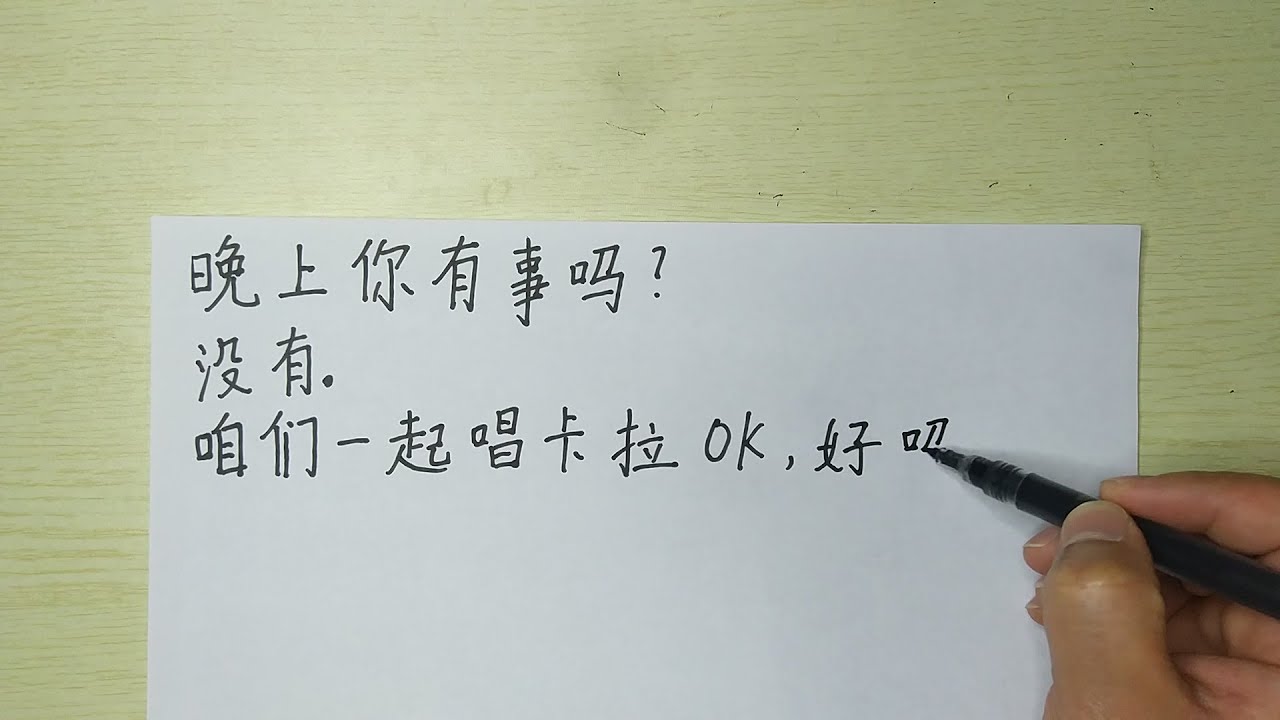 晚上你有事吗?
没有.
咱们一起唱卡拉OK,好